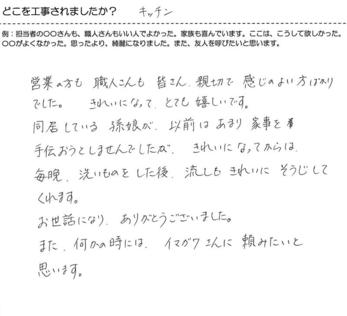 どこを工事されましたか？ キッチン
例：担当者の〇〇さんも、職人さんもいい人でよかった。家族も喜んでいます。ここは、こうして欲しかった。
〇〇がよくなかった。思ったより、綺麗になりました。また、友人を呼びたいと思います。
営業の方も 職人さんも 皆さん、親切で 感じのよい方ばかり
でした。 きれいになって、とても嬉しいです。
同居している 孫娘が、以前は あまり 家事を
手伝おうとしませんでしたが、 きれいになってからは、
毎晩、洗いものをした後、流しも きれいに そうじして
くれます。
お世話になり、ありがとうございました。
また、何かの時には、イマガワさんに 頼みたいと
思います。